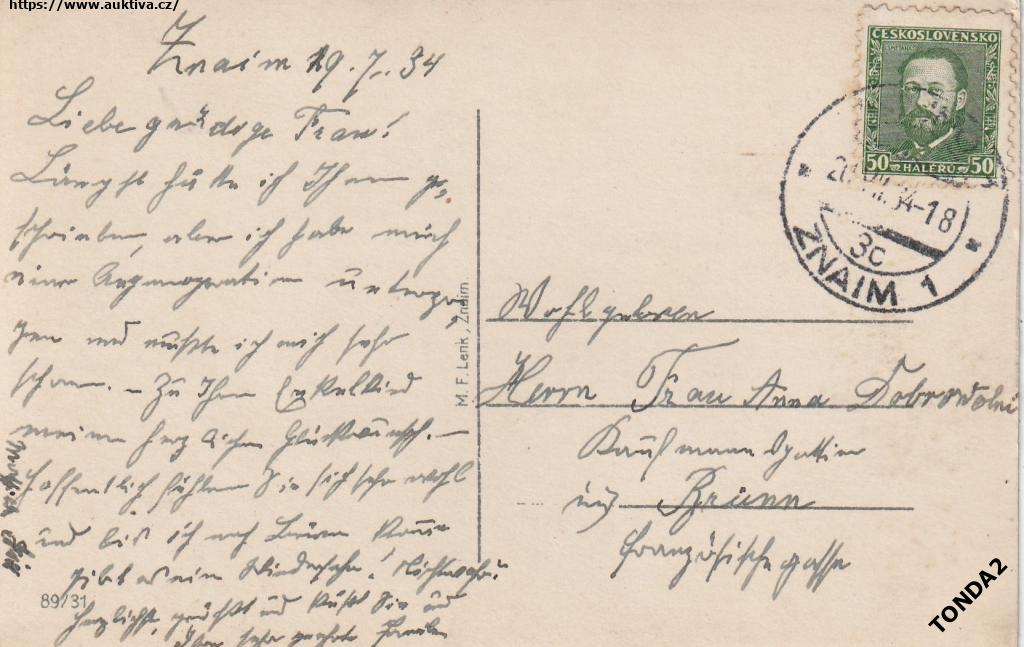 https://www.auktiva.cz/
Znaim 19.7.34
Liebe gnädige Frau!
Längst hätte ich Ihnen ge-
schrieben, aber ich habe mich
einer Augenoperation unterzo-
gen und mußte ich mich sehr
schonen. – Zu Ihrem Enkelkind
meinen herzlichen Glückwunsch. –
Hoffentlich fühlen Sie sich sehr wohl
und bis ich nach Brünn komme
gibt es ein Wiedersehn! Nichtwahr?
Herzlichst grüßt und küßt Sie und
Ihre sehr geehrte Familie
89/31
M. F. Lenk, Znaim
ČESKOSLOVENSKO
50 HALÉŘŮ 50
34-18
3c
ZNAIM 1
Wohlgeboren
Herrn Frau Anna Dobrowolni
Kaufmannsgattin
in Brünn
Französischegasse
TONDA2